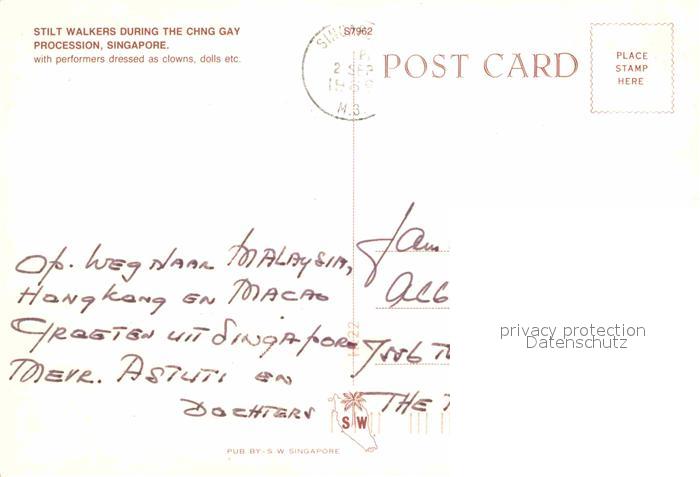 STILT WALKERS DURING THE CHNG GAY
PROCESSION, SINGAPORE.
with performers dressed as clowns, dolls etc.
S7962
2 SEP
M.3.
POST CARD
PLACE
STAMP
HERE
Op. Weg naar Malaysia,
Hongkong en Macao
Groeten uit Singapore
Mevr. Astuti en
Dochters
Jam
7556 T
THE
privacy protection
Datenschutz
S W
PUB. BY:- S.W. SINGAPORE